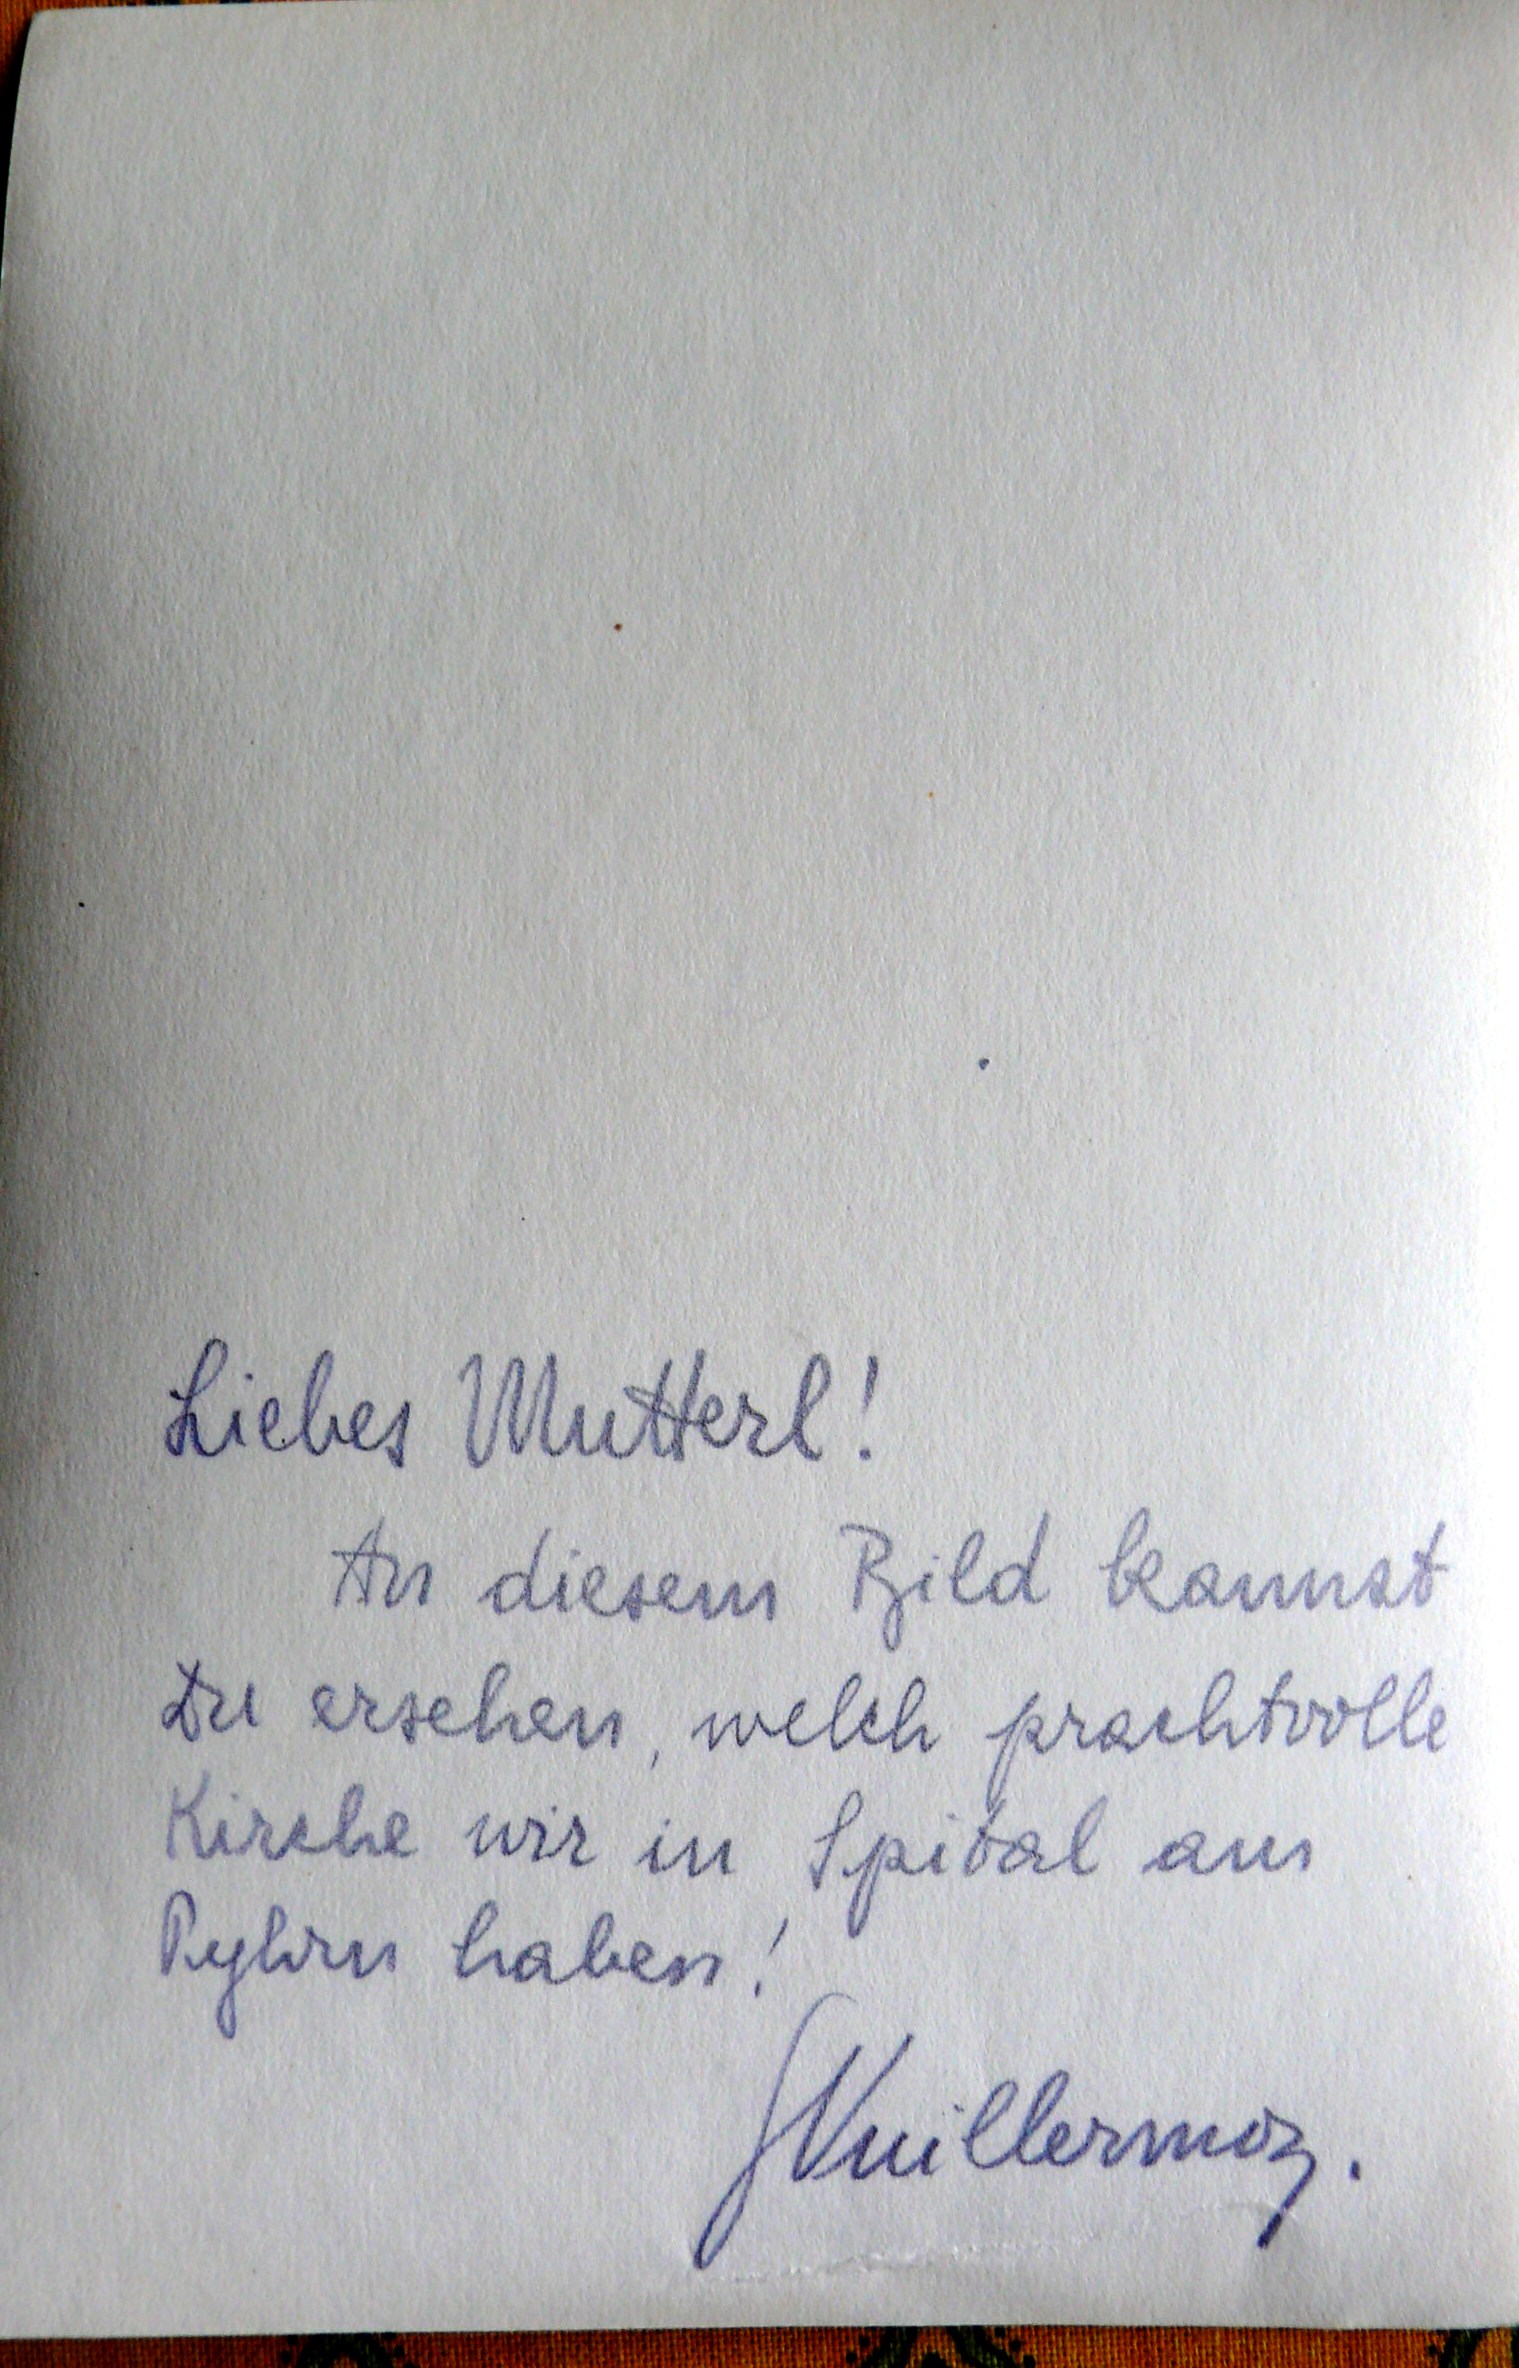 Liebes Mutterl!
An diesem Bild kannst
Du ersehen, welch prachtvolle
Kirche wir in Spital am
Pyhrn haben!
Vuillermoz.